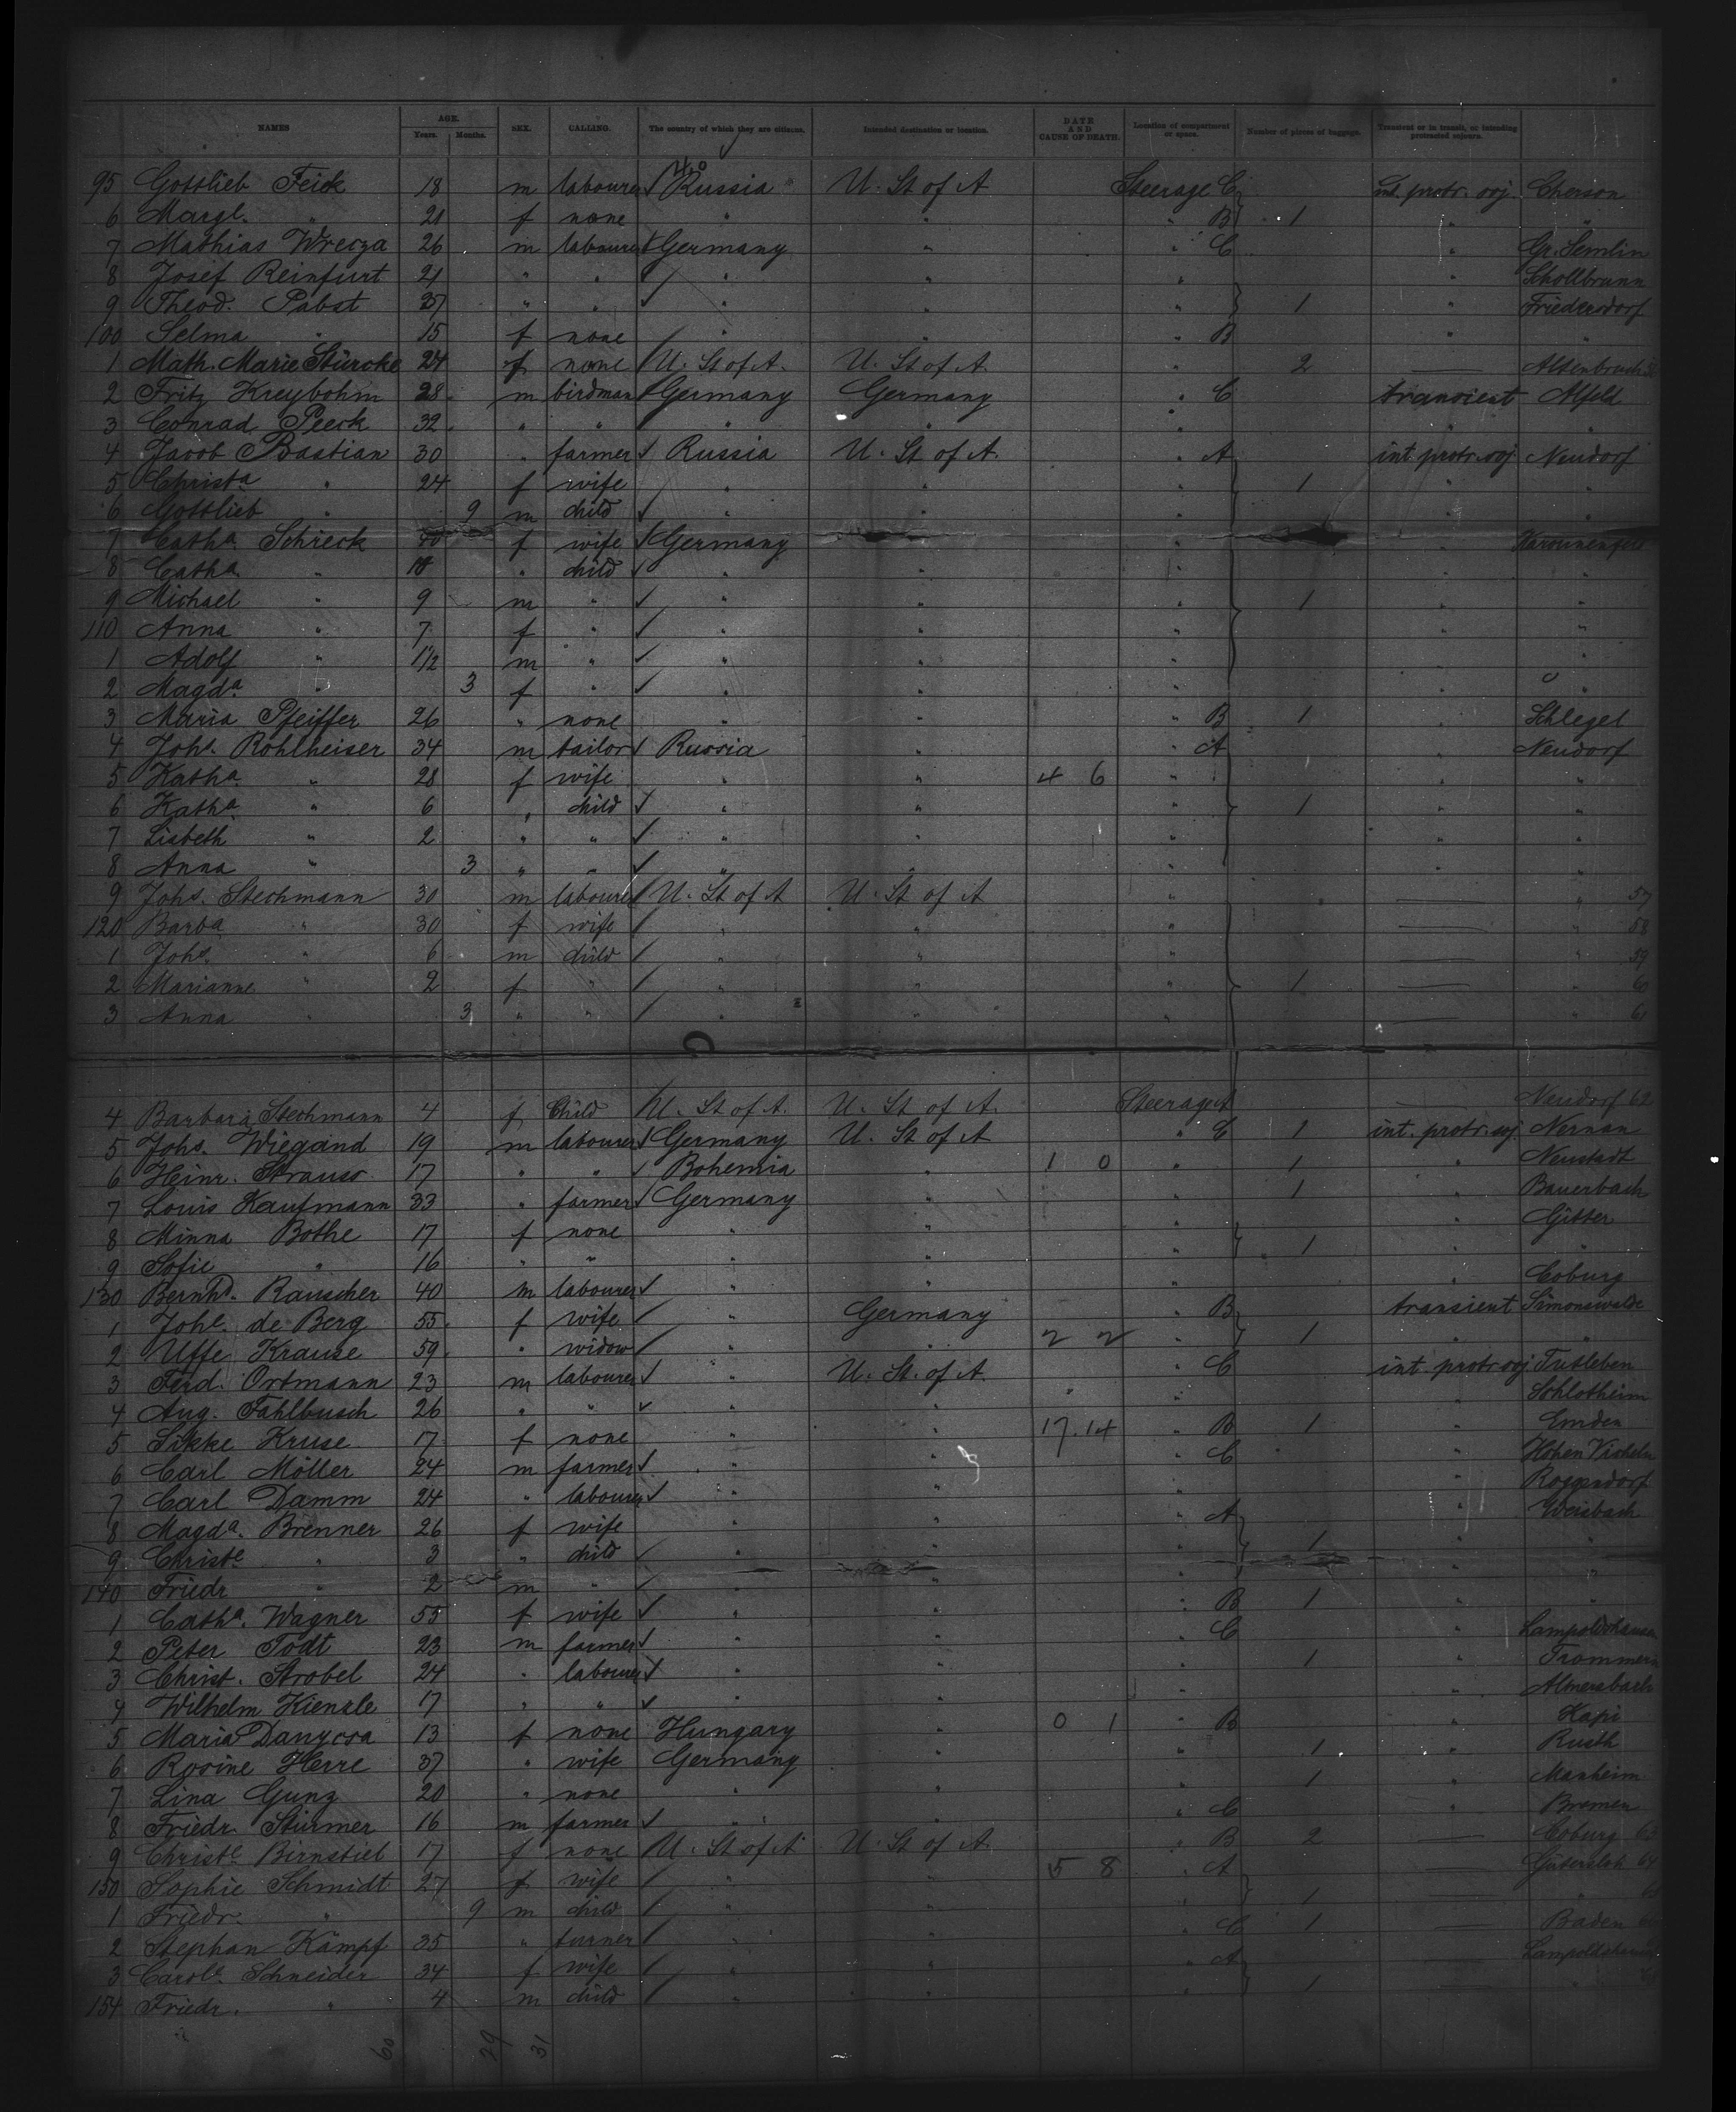 NAMES AGE. Years. Months. SEX. CALLING. The country of which they are citizens. Intended destination or location. DATE AND CAUSE OF DEATH. Location of compartment or space. Number of pieces of baggage. Transient or in transit, or intending protracted sojourn.
95 Gottlieb Feick 18 m labourer Russia U. St of A Steerage C int. protr. soj. Cherson
6 Margt. " 21 f none " " " B 1 " "
7 Mathias Wrecza 26 m labourer Germany " " C " Gr. Semlin
8 Josef Reinfurt 21 " " " " " " Schollbrunn
9 Theod. Pabst 37 " " " " " 1 " Friedersdorf
100 Selma " 15 f none " " " B " "
1 Math. Marie Stürcke 24 f none U. St of A. U. St of A. " 2 — Altenbruch
2 Fritz Kreybohm 28 m birdman Germany Germany " C transient Alfeld
3 Conrad Peeck 32 " " " " " " "
4 Jacob Bastian 30 " farmer Russia U. St of A. " A int. protr. soj. Neudorf
5 Christa " 24 f wife " " " 1 " "
6 Gottlieb " 9 m child " " " " "
7 Catha Schreck 40 f wife Germany " "
8 Catha " " child " " " " "
9 Michael " 9 m " " " " 1 " "
110 Anna " 7 f " " " " " "
1 Adolf " 1½ m " " " " "
2 Magda " 3 f " " " " "
3 Maria Pfeiffer 26 " none " " " B 1 " Schlegel
4 Johs. Rohlheiser 34 m tailor Russia " " A " Neudorf
5 Katha " 28 f wife " " 4 6 " " "
6 Katha " 6 " child " " " 1 " "
7 Lisbeth " 2 " " " " " " "
8 Anna " 3 " " " " " " "
9 Johs. Stechmann 30 m labourer U. St of A U. St of A " — " 57
120 Barba " 30 f wife " " " — " 58
1 Johs. " 6 m child " " " — " 59
2 Marianne " 2 f " " " " 1 — " 60
3 Anna " 3 " " " " " — " 61
4 Barbara Stechmann 4 f Child U. St of A. U. St of A. Steerage A — Neudorf 62
5 Johs. Wiegand 19 m labourer Germany U. St of A " C 1 int. protr. soj. Nernan
6 Heinr. Strauss 17 " " Bohemia " 1 0 " 1 " Neustadt
7 Louis Kaufmann 33 " farmer Germany " " 1 " Bauerbach
8 Minna Bothe 17 f none " " " " Gitter
9 Sofie " 16 " " " " " 1 " "
130 Bernhd. Rauscher 40 m labourer " " " " Coburg
1 Johe. de Berg 55 f wife " Germany " B transient Simonswolde
2 Uffe Krause 59 " widow " " 2 2 " 1 " "
3 Ferd. Ortmann 23 m labourer " U. St. of A. " C int. protr. soj. Tutleben
4 Aug. Fahlbusch 26 " " " " " " Schlotheim
5 Sikke Kruse 17 f none " " 17.14 " B 1 " Emden
6 Carl Möller 24 m farmer " " " C "
7 Carl Damm 24 " labourer " " " " Roggersdorf
8 Magda. Brenner 26 f wife " " " A " Weisbach
9 Christe " 3 " child " " " 1 " "
140 Friedr " 2 m " " " " " "
1 Catha. Wagner 55 f wife " " " B 1 " "
2 Peter Todt 23 m farmer " " " C " Lampoldshausen
3 Christ. Strobel 24 " labourer " " " 1 "
4 Wilhelm Kienzle 17 " " " " " " Almersbach
5 Maria Danycsa 13 f none Hungary " 0 1 " B " Hapi
6 Rosine Herre 37 " wife Germany " " 1 " Rusth
7 Lina Gunz 20 " none " " " 1 " Manheim
8 Friedr. Stürmer 16 m farmer " " " C " Bremen
9 Christe Birnstiel 17 f none U. St of A U. St of A. " B 2 — Coburg 63
150 Sophie Schmidt 27 f wife " " 5 8 " A — Gütersloh 64
1 Friedr. " 9 m child " " " 1 — "
2 Stephan Kämpf 35 " turner " " " C 1 — Baden
3 Carole Schneider 34 f wife " " " A — Lampoldshausen
154 Friedr. " 4 m child " " " 1 — "
60 29 31